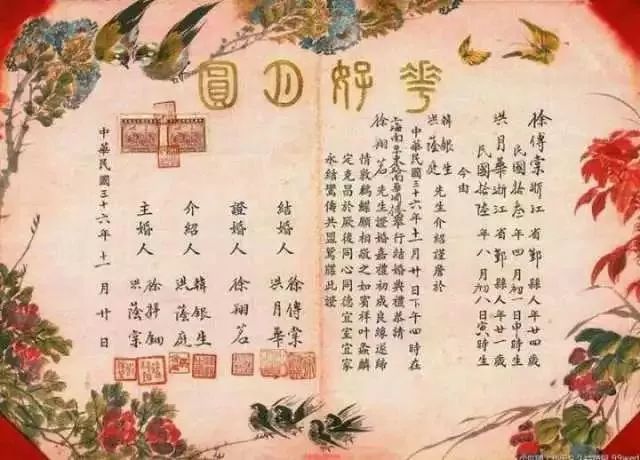 花好月圓
徐傳棠浙江省鄞縣人年廿四歲
民國拾叁年四月初一日申時生
洪月華浙江省鄞縣人年廿一歲
民國拾陸年八月初八日寅時生
今由
韓銀生
洪蔭庭
先生介紹謹詹於
中華民國三十六年十一月廿日下午四時在
上海南京東路南華酒樓舉行結婚典禮恭請
徐翔茗先生證婚嘉禮初成良緣遂締
情敦鶼鰈願相敬之如賓祥叶螽麟
定克昌於厥後同心同德宜室宜家
永結鸞儔共盟鴛牒此證
結婚人
徐傳棠
洪月華
證婚人
徐翔茗
介紹人
韓銀生
洪蔭庭
主婚人
徐
洪蔭棠
中華民國三十六年十一月廿日